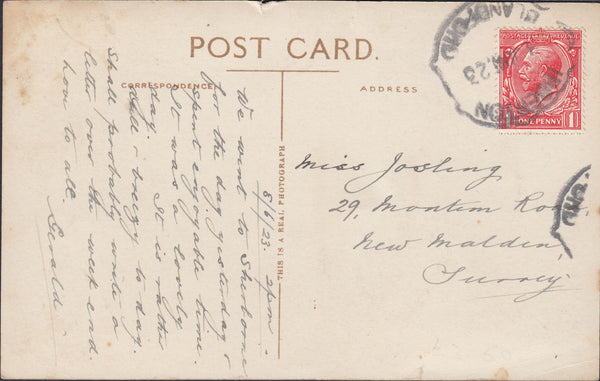 POST CARD.
CORRESPONDENCE
ADDRESS
THIS IS A REAL PHOTOGRAPH
8/6/23. 2pm.
We went to Sherborne
for the day yesterday &
spent enjoyable time.
It was a lovely
day. It is rather
dull & breezy to day.
Shall probably write a
letter over the week end.
love to all.
Gerald
Miss Josling
29, Montem Road,
New Malden,
Surrey.
BLANDFORD
23
POSTAGE REVENUE
ONE PENNY
1